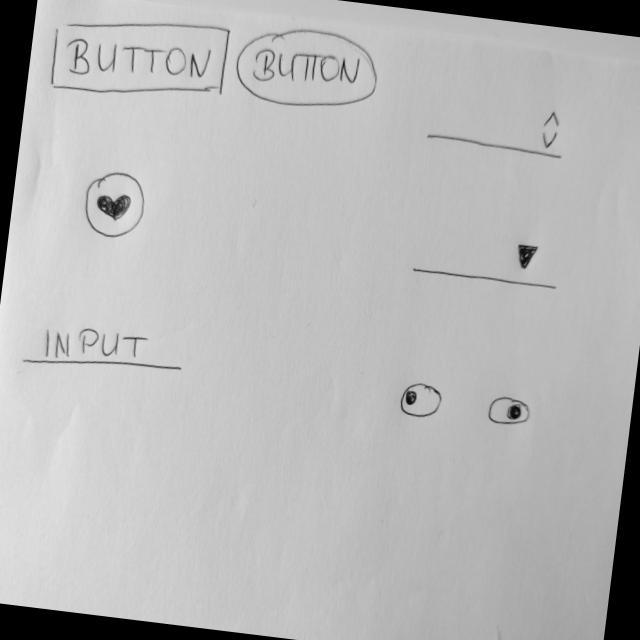 BUTTON BUTTON
INPUT